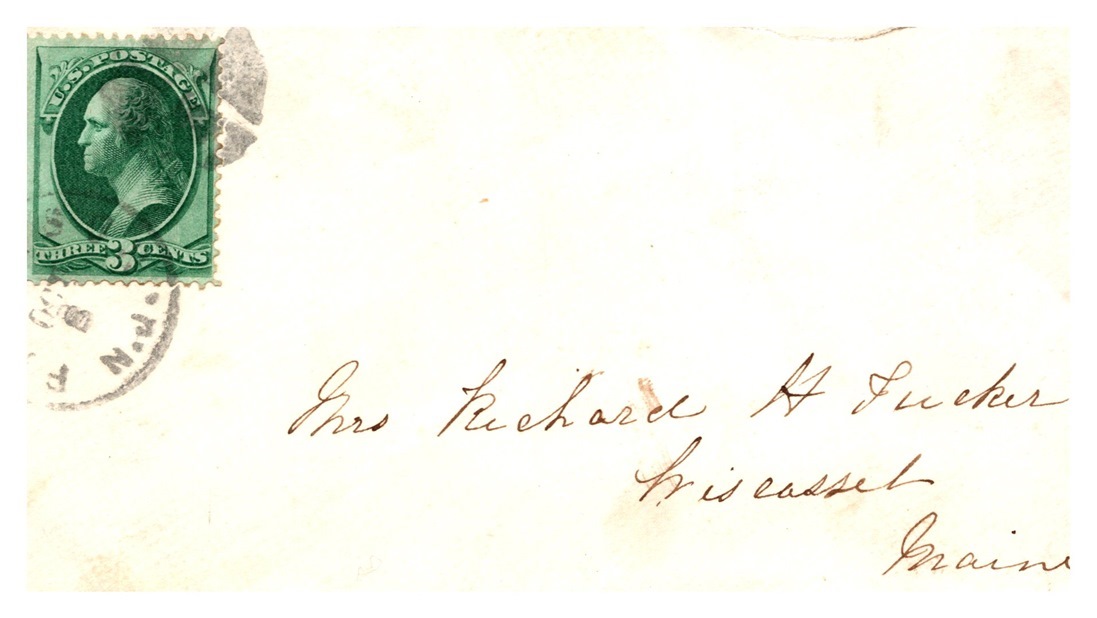 U.S. POSTAGE
THREE 3 CENTS
N.J.
Mrs Richard H Tucker
Wiscasset
Maine